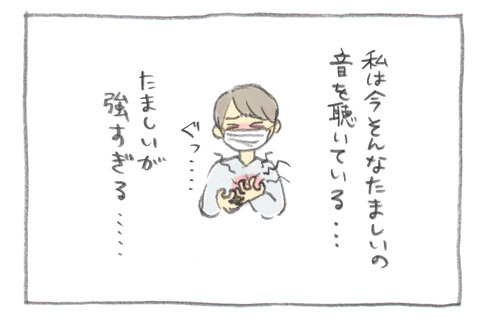 私は今そんなたましいの
音を聴いている…
ぐっ……
たましいが
強すぎる……